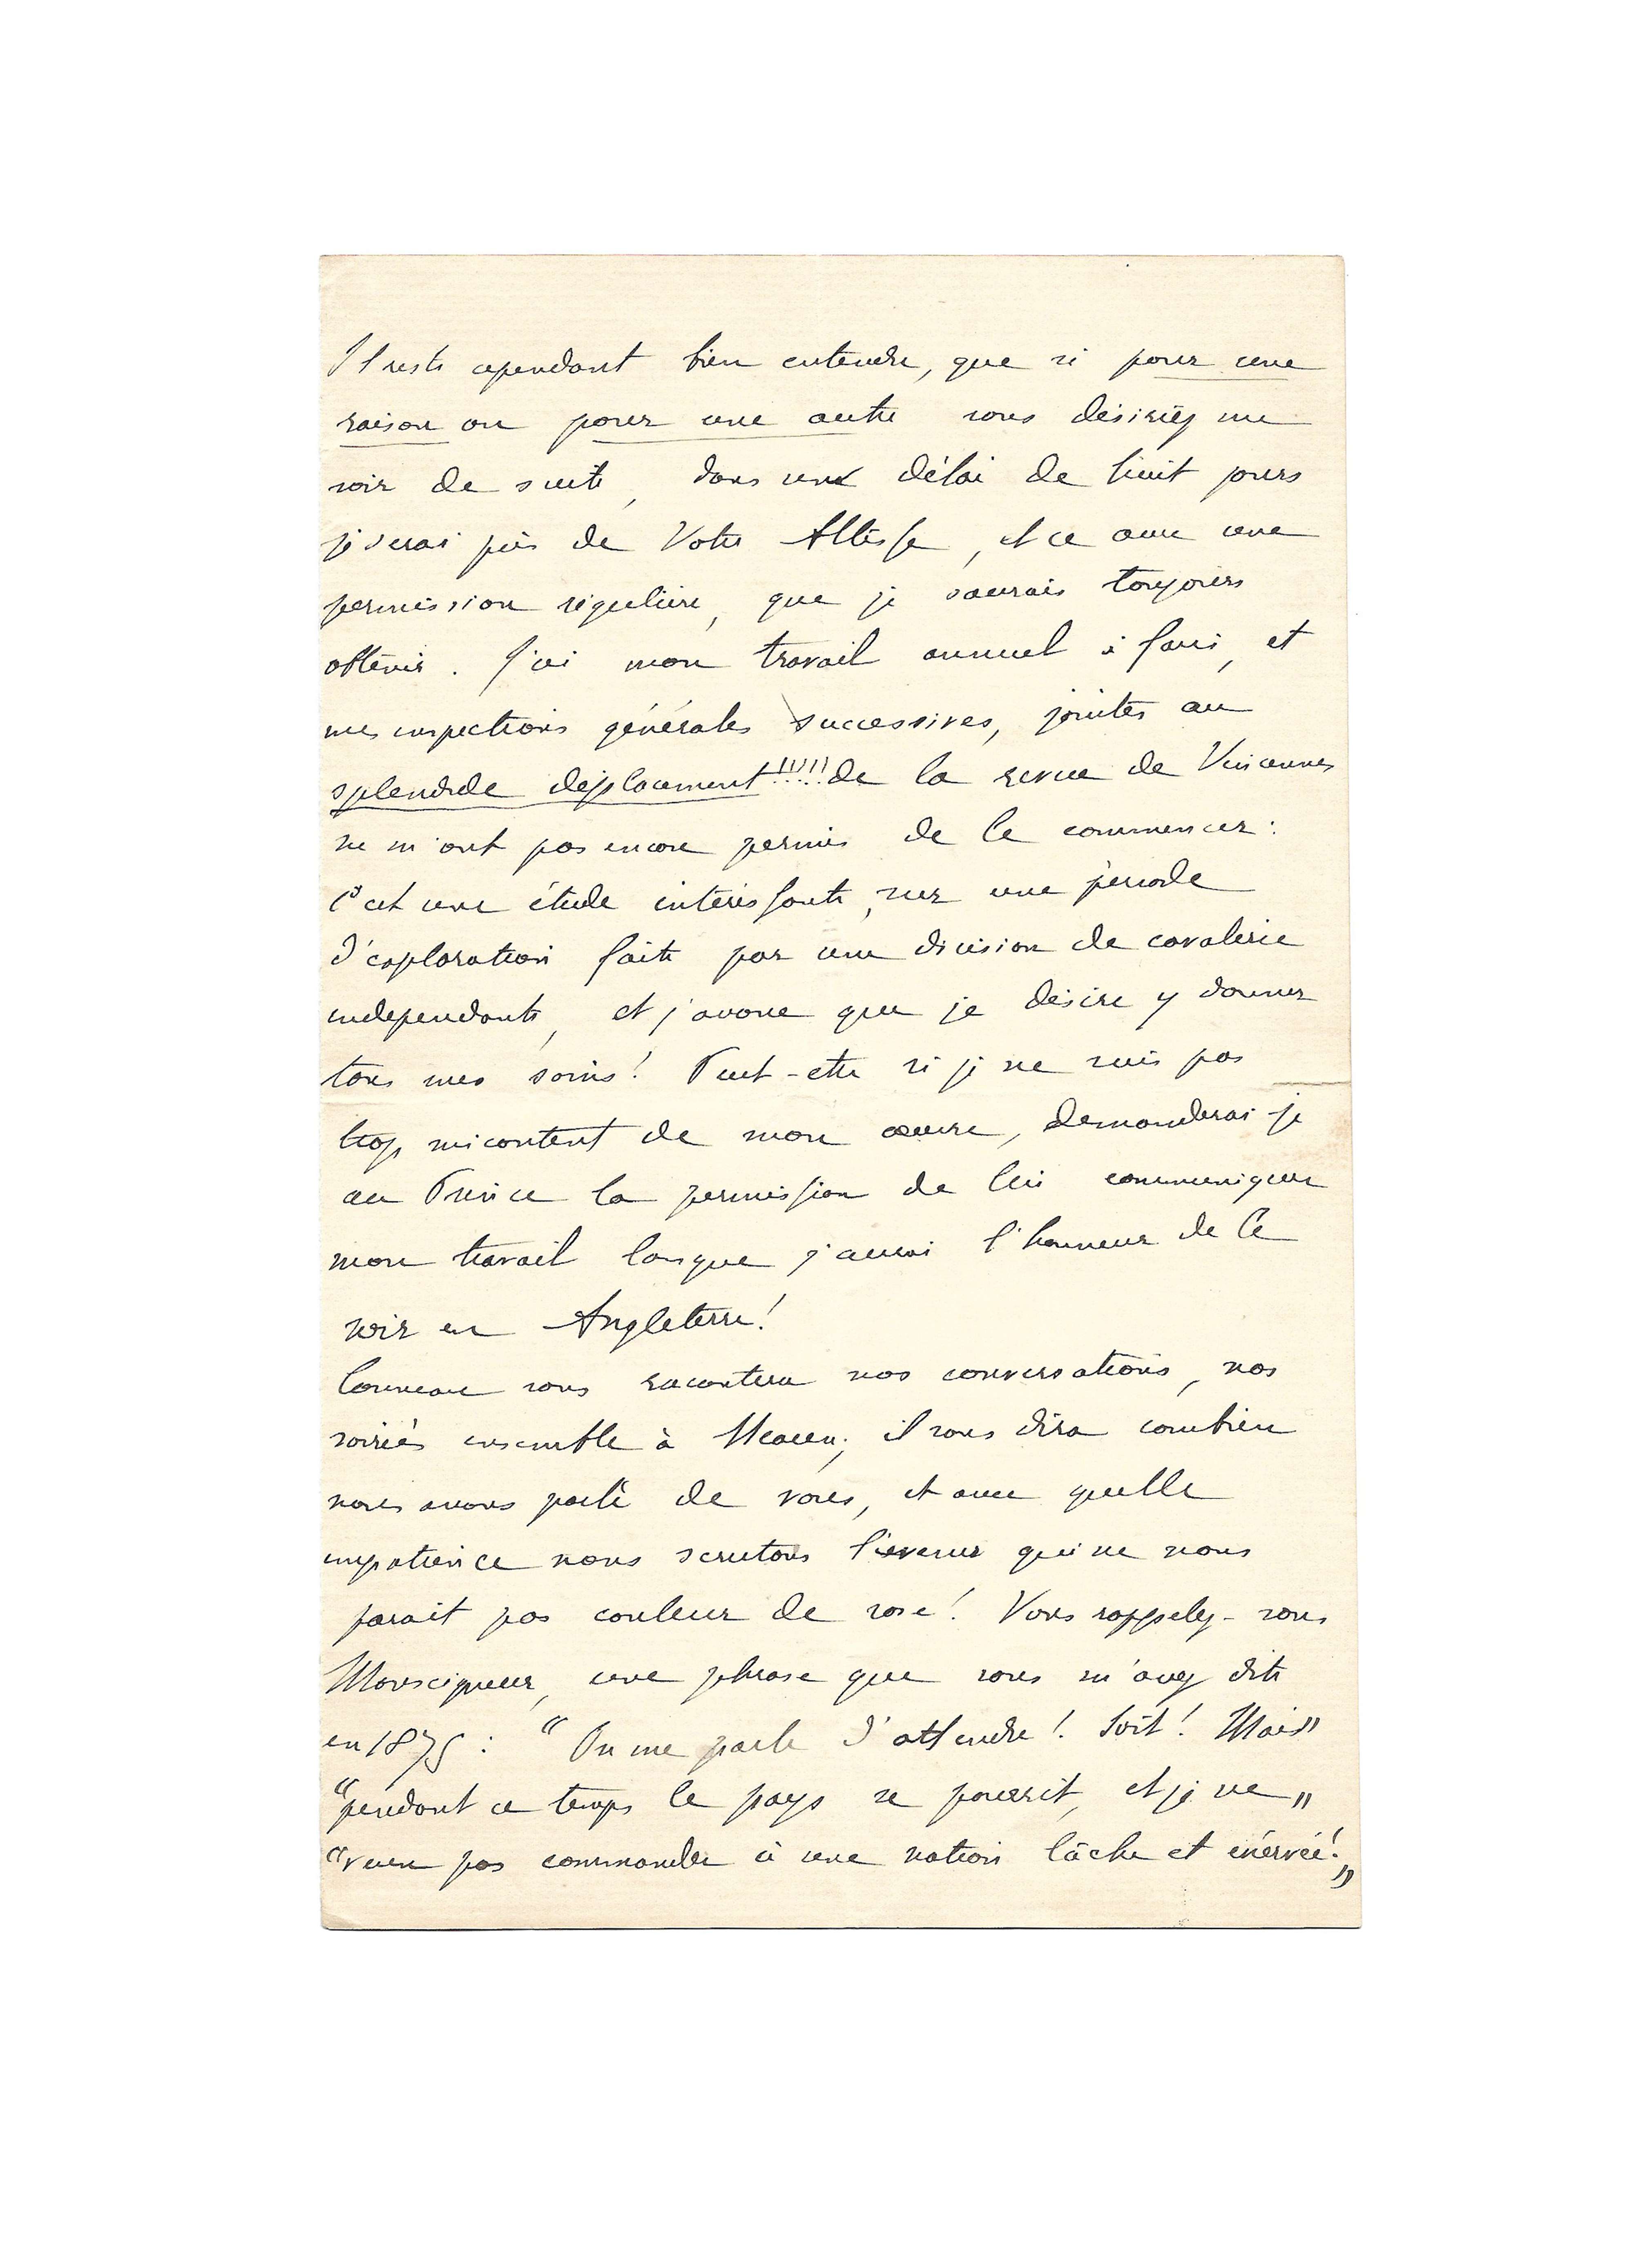 Il reste cependant bien entendu, que si pour une
raison ou pour une autre vous désiriez me
voir de suite, dans un délai de huit jours
je serai près de Votre Altesse, et ce avec une
permission régulière, que je saurais toujours
obtenir. J'ai mon travail annuel à faire, et
mes inspections générales successives, jointes au
splendide déplacement!!!!! de la revue de Vincennes
ne m'ont pas encore permis de le commencer:
C'est une étude intéressante, sur une période
d'exploration faite par une division de cavalerie
indépendante, et j'avoue que je désire y donner
tous mes soins! Peut-etre si je ne suis pas
trop mécontent de mon œuvre, demanderai-je
au Prince la permission de lui communiquer
mon travail lorsque j'aurai l'honneur de le
voir en Angleterre!
Conneau vous racontera nos conversations, nos
soirées ensemble à Meaux; il vous dira combien
nous avons parlé de vous, et avec quelle
impatience nous scrutons l'avenir qui ne nous
parait pas couleur de rose! Vous rappelez-vous
Monseigneur, une phrase que vous m'avez dite
en 1875: "On me parle d'attendre! Soit! Mais"
"pendant ce temps le pays se pourrit, et je ne"
"veux pas commander à une nation lâche et énervée!"